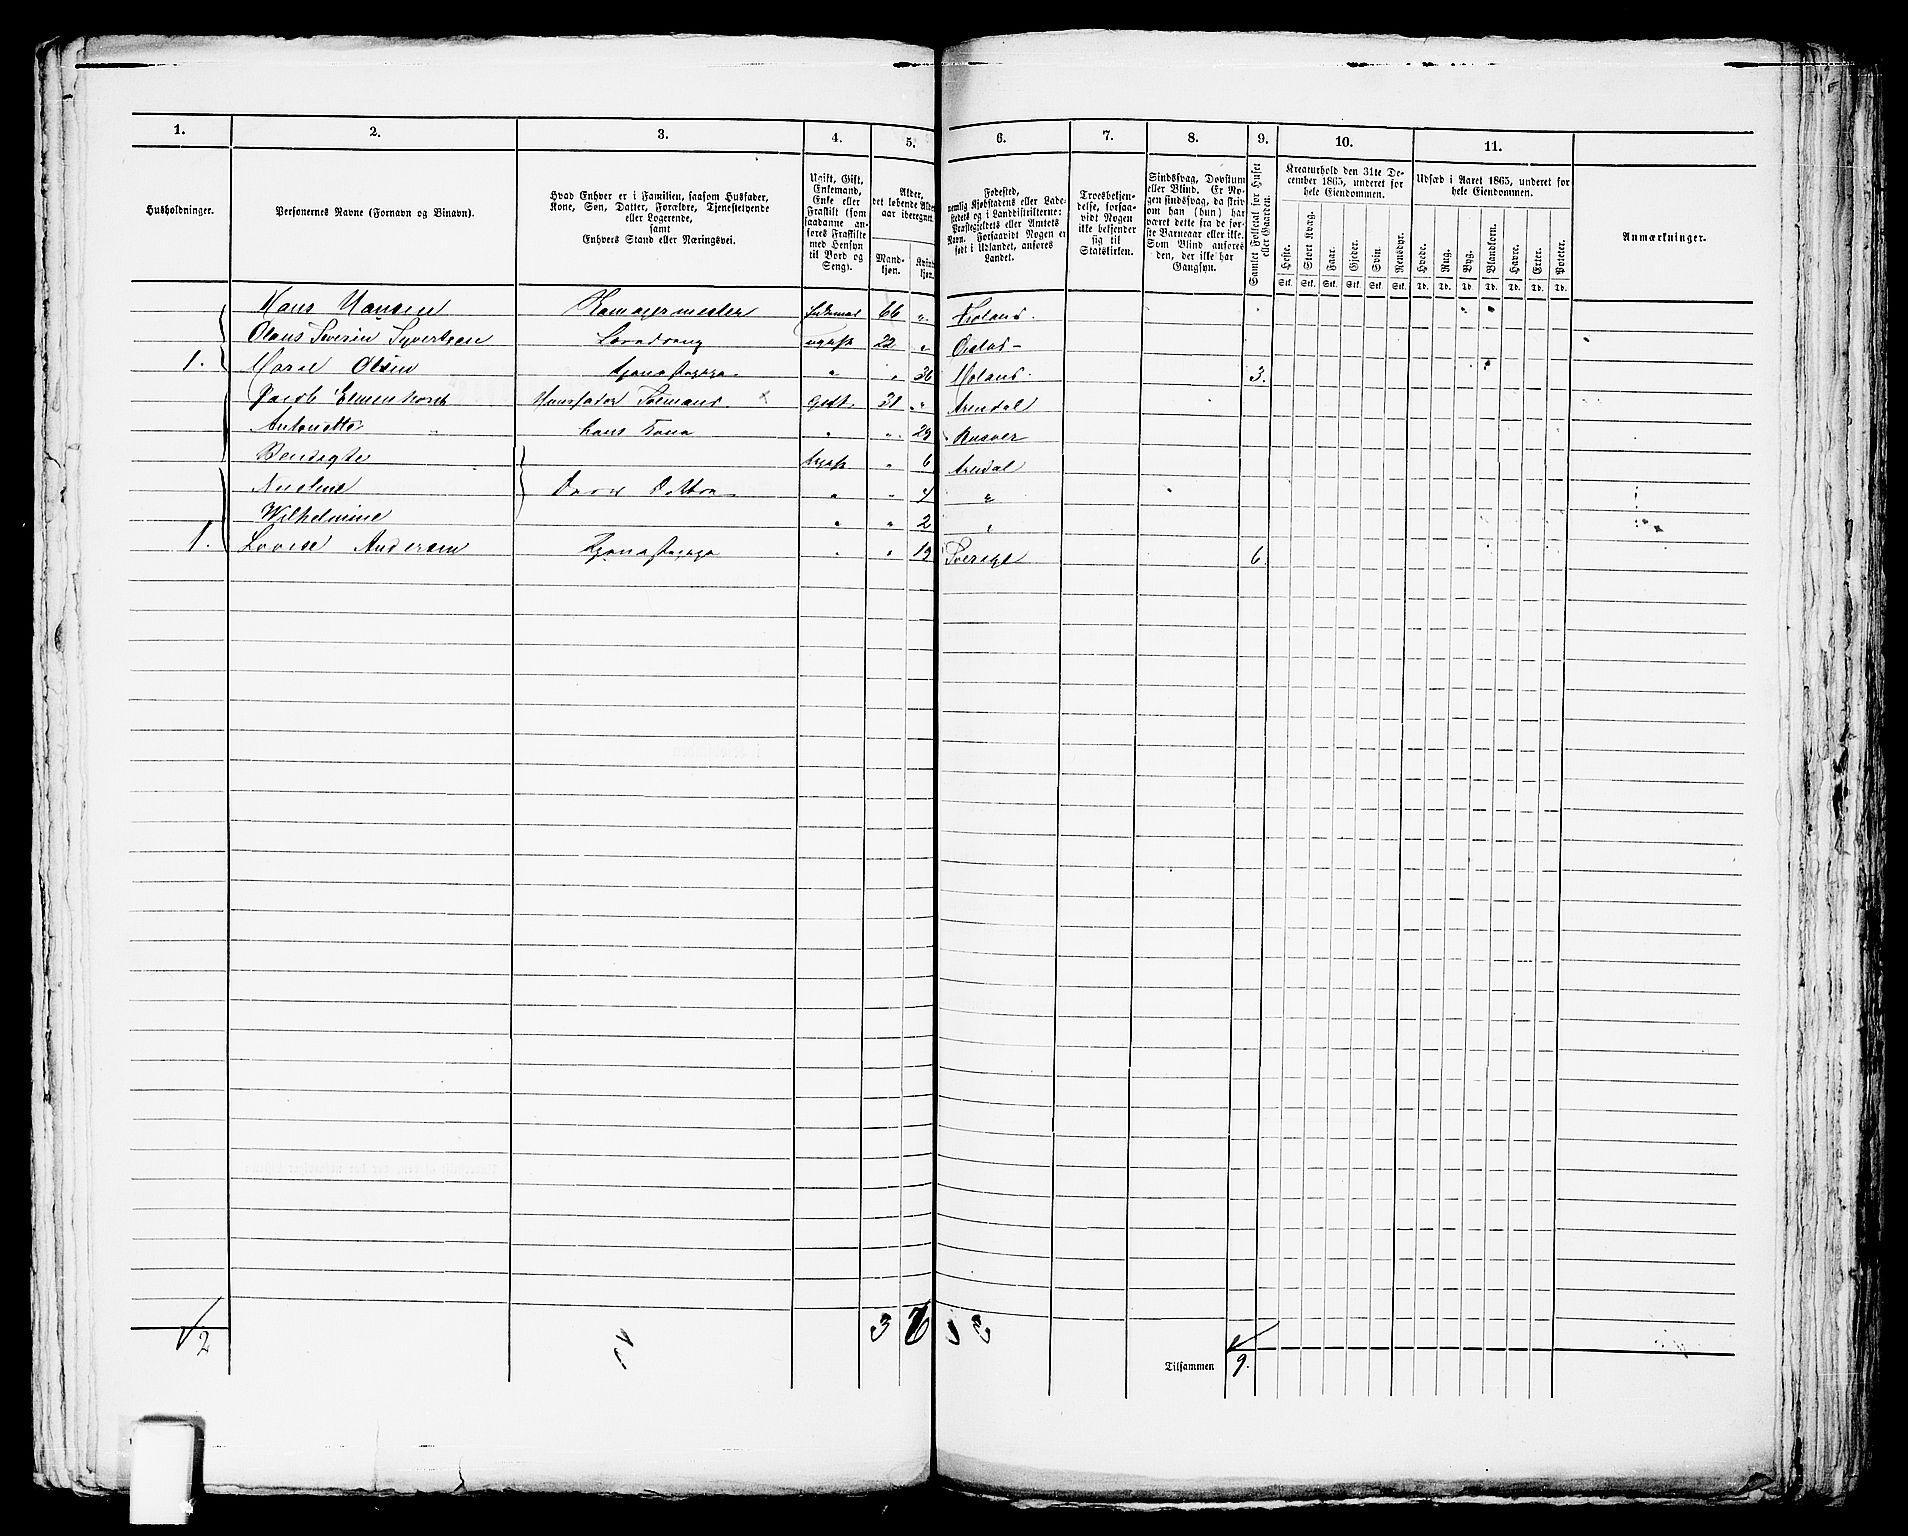 1. 2. 3. 4. 5. 6. 7. 8. 9. 10. 11.
Husholdninger.
Personernes Navne (Fornavn og Binavn).
Hvad Enhver er i Familien, saasom Husfader,
Kone, Søn, Datter, Forældre, Tjenestetyende
eller Logerende,
samt
Enhvers Stand eller Næringsvei.
Ugift, Gift,
Enkemand,
Enke eller
Fraskilt (som
saadanne an-
føres Fraskilte
med Hensyn
til Bord og
Seng).
Alder,
det løbende Alders-
aar iberegnet.
Mand-
kjøn.
Kvinde-
kjøn.
Fødested,
nemlig Kjøbstadens eller Lade-
stedets og i Landdistrikterne:
Præstegjeldets eller Amtets
Navn. Forsaavidt Nogen er
født i Udlandet, anføres
Landet.
Troesbekjen-
delse, forsaa-
vidt Nogen
ikke bekjender
sig til
Statskirken.
Sindssvag, Døvstum
eller Blind. Er No-
gen sindssvag, da skriv
om han (hun) har
været dette fra de før-
ste Barneaar eller ikke.
Som Blind anføres
den, der ikke har
Gangsyn.
Samlet Folketal for Huset
eller Gaarden.
Kreaturhold den 31te De-
cember 1865, underet for
hele Eiendommen.
Heste. Stort Kvæg. Faar. Gjeder. Svin. Rensdyr.
Stk. Stk. Stk. Stk. Stk. Stk.
Udsæd i Aaret 1865, underet for
hele Eiendommen.
Hvede. Rug. Byg. Blandkorn. Havre. Erter. Poteter.
Td. Td. Td. Td. Td. Td. Td.
Anmærkninger.
Hans Hansen 66 „
Olaus Severin Syvertsen ugift 22 „
1. Maren Olsen „ „ 36 3.
Jacob Husfader Sømand Gift 31 „ Arendal
Antonette hans Kone „ „ 29
Bendigte ugift „ 6 Arendal
Døtre „ „ 4 „
Wilhelmine „ „ 2 „
1. Lovise Andersen „ „ 19 Sverige 6
2 3 6
Tilsammen 9.